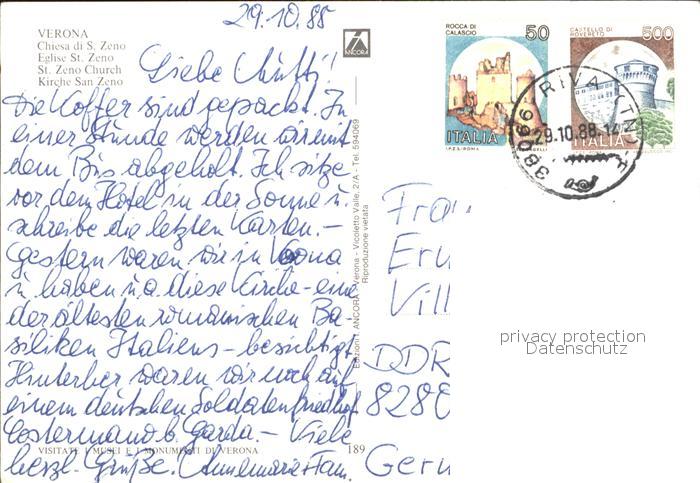 29.10.88
VERONA
Chiesa di S. Zeno
Eglise St. Zeno
St. Zeno Church
Kirche San Zeno
ANCORA
Liebe Mutti!
Die Koffer sind gepackt. In
einer Stunde werden wir mit
dem Bus abgeholt. Ich sitze
vor dem Hotel in der Sonne u.
schreibe die letzten Karten. –
Gestern waren wir in Verona
u. haben u.a. diese Kirche – eine
der ältesten romanischen Ba-
siliken Italiens – besichtigt.
Hinterher waren wir noch auf
einem deutschen Soldatenfriedhof
Costermano b. Garda. – Viele
herzl. Grüße. Annemarie + Fam.
VISITATE I MUSEI E I MONUMENTI DI VERONA
189
Edizioni ANCORA - Verona - Vicoletto Valle, 2/A - Tel. 594069
Riproduzione vietata
ROCCA DI
CALASCIO
50
ITALIA
I.P.Z.S. ROMA
CASTELLO DI
ROVERETO
500
ITALIA
I.P.Z.S. ROMA
38066 RIVA
29.10.88.12
Frau
Eru
Vill
DDR
828
Geru
privacy protection
Datenschutz